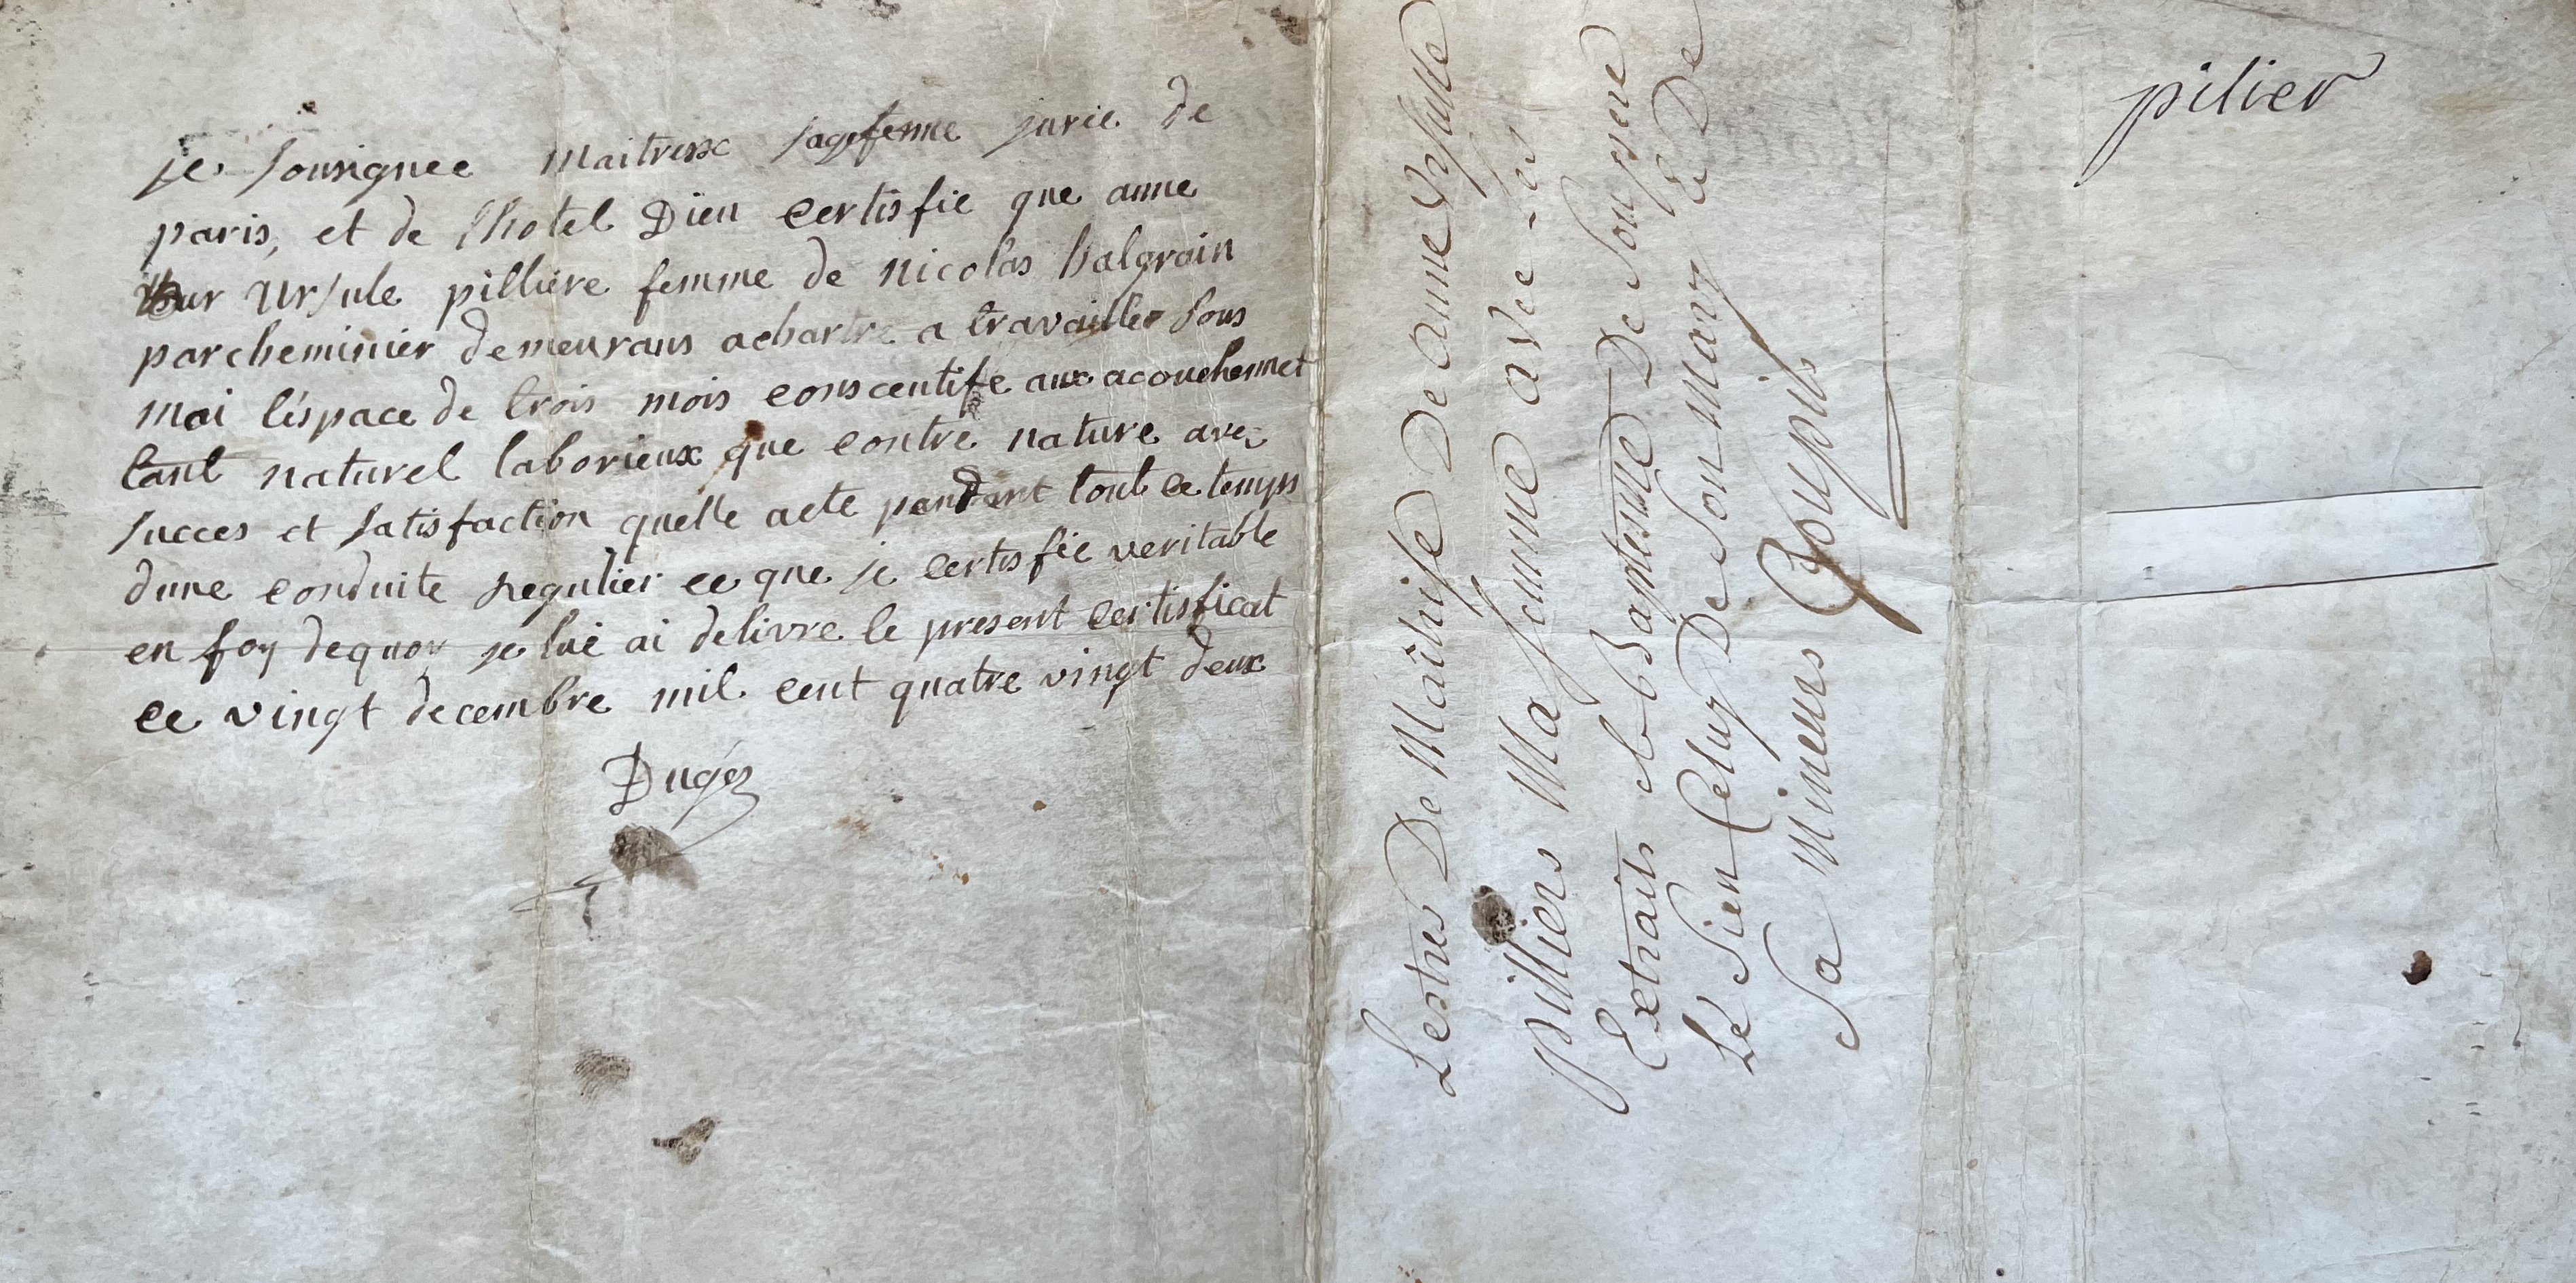 je sousignee maitresse sagefemme jurie de
paris, et de lhotel Dieu certisfie que anne
ur ursule pilliere femme de nicolas balgrain
parcheminier demeurans achartre a travailler sous
moi l'espace de trois mois conscentife aux acouchemnet
tant naturel laborieux que contre nature avec
succes et satisfaction quelle aete pendant tout ce temps
dune conduite regulier ce que je certisfie veritable
en foy dequoy je lui ai delivre le present certisficat
ce vingt decembre mil cent quatre vingt deux
Dugès
Lestres De Maitrise De anne Ursulle
pilliers Ma famme avec les
Extraits et Baptesme De Son pere
Le Sien Celuy De Son Mary Et De
Sa Mineurs Goupils
pilier